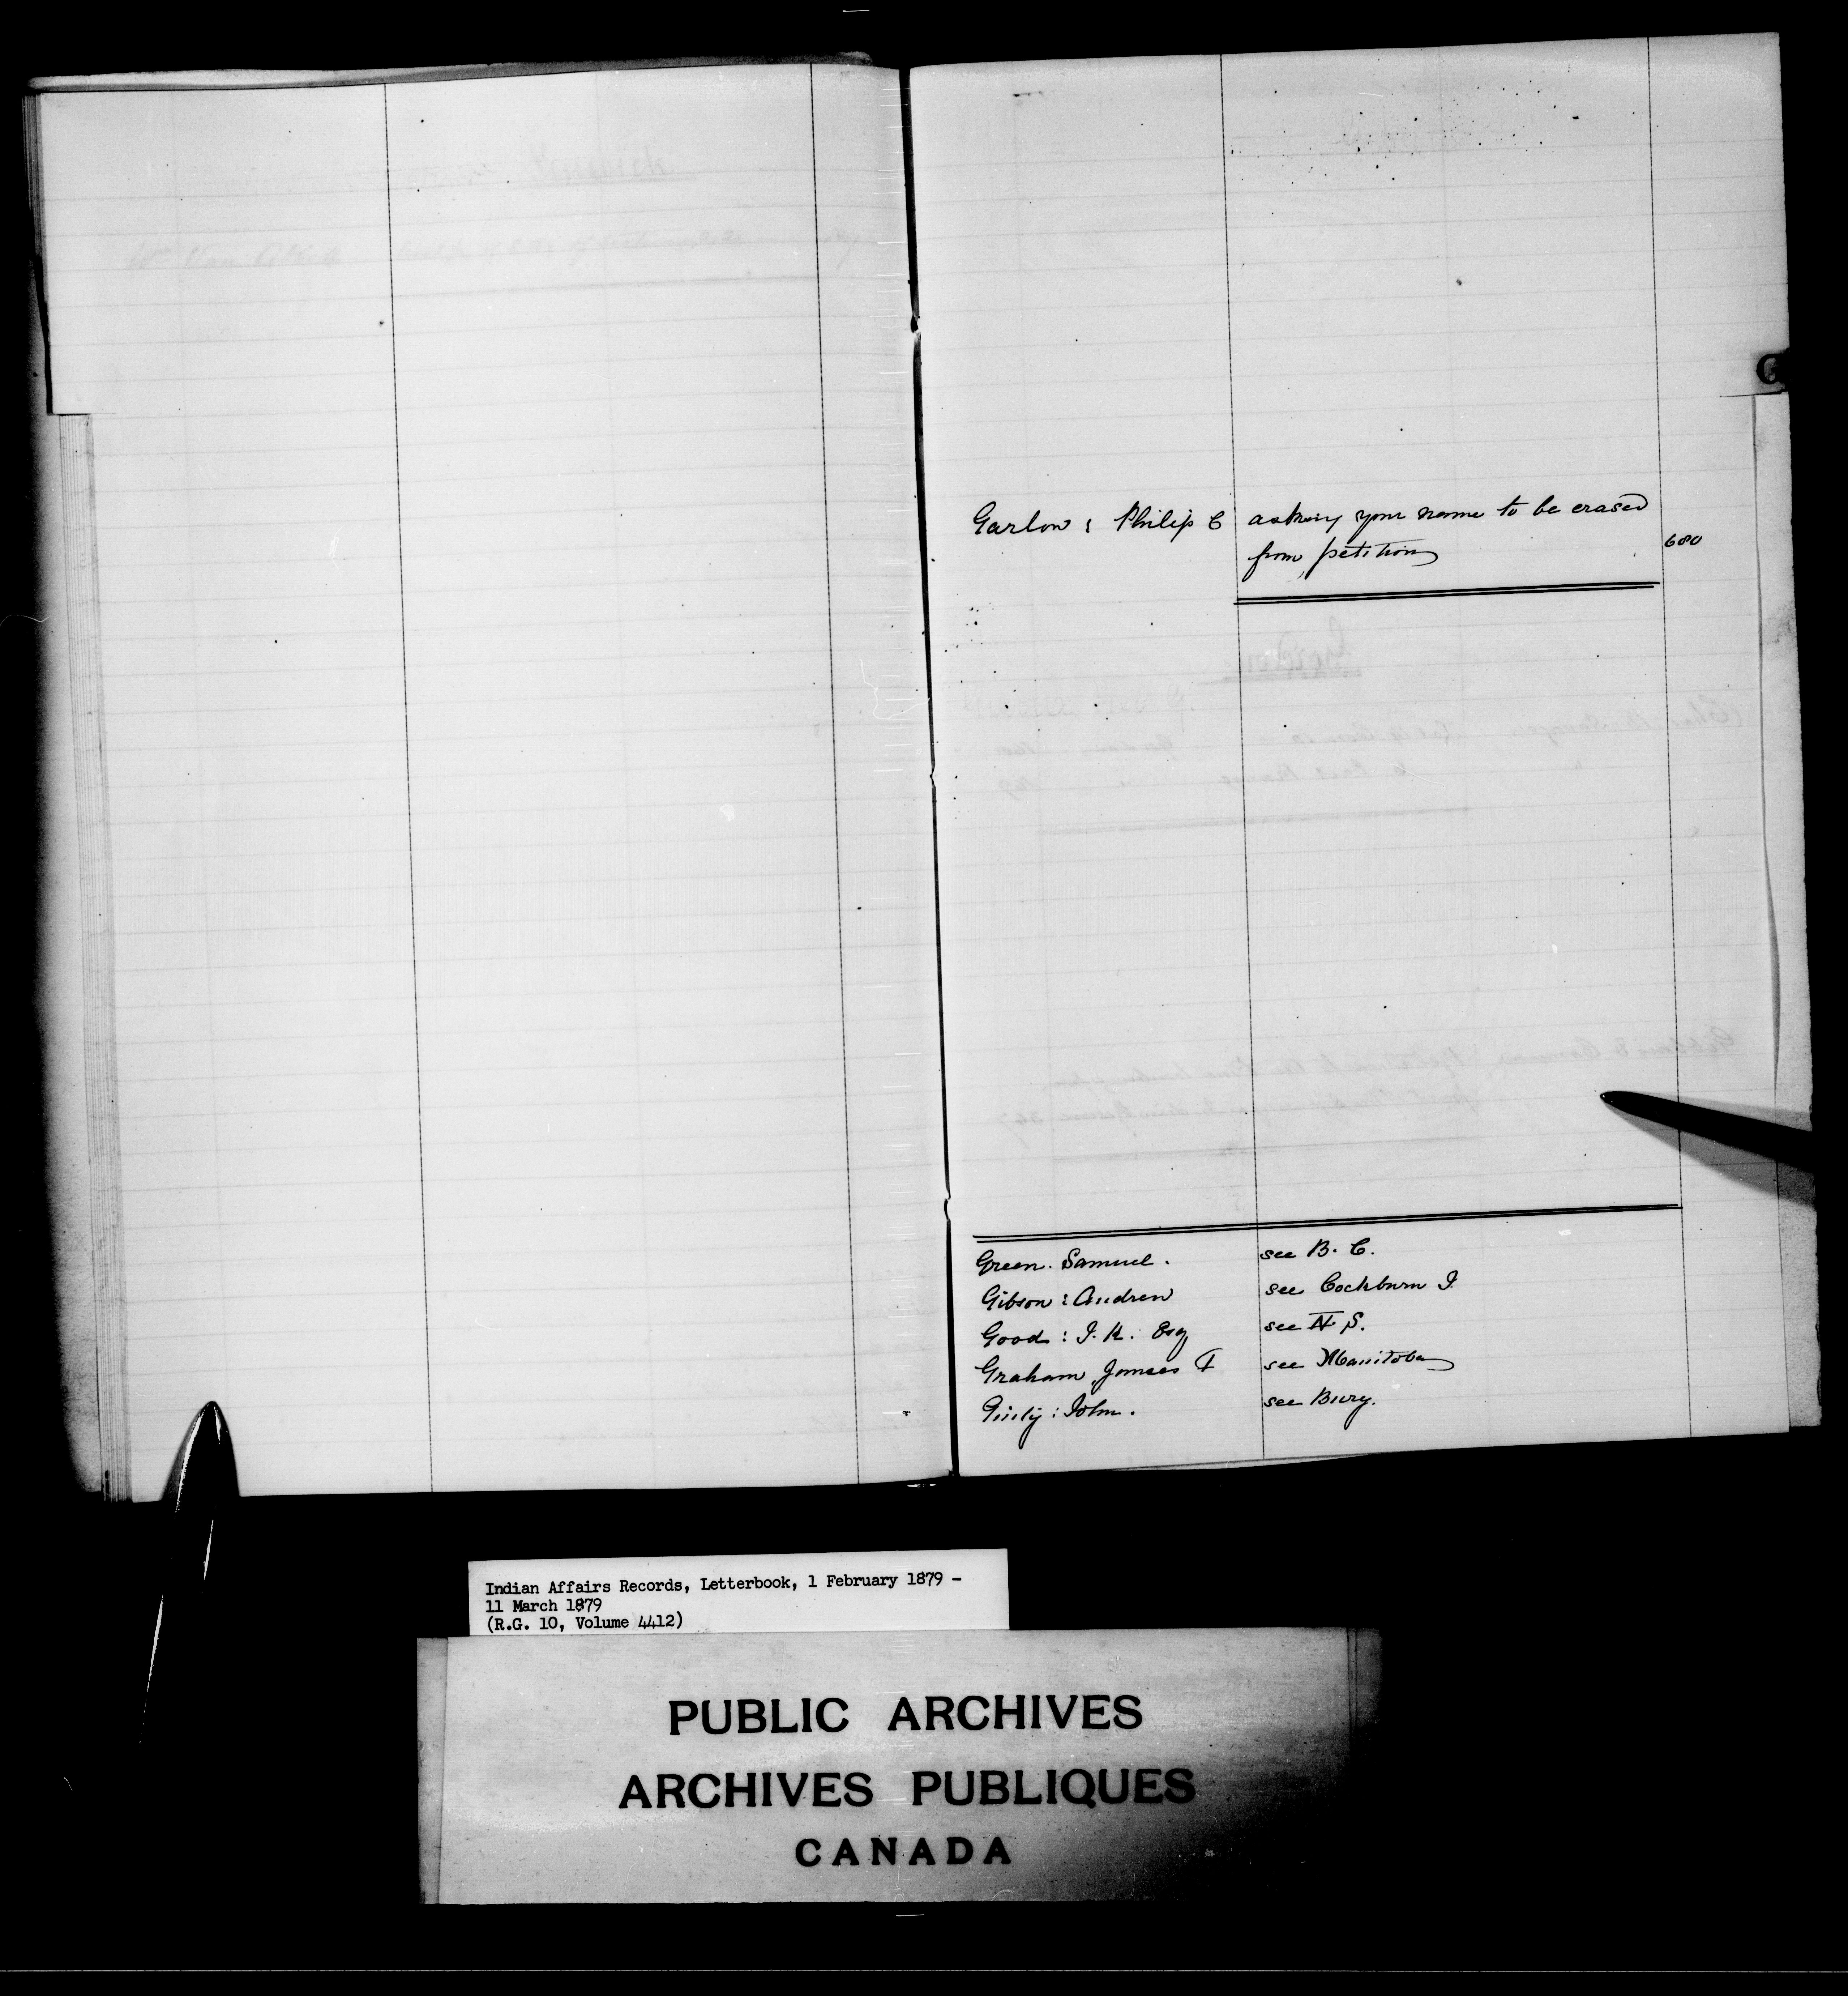 G
Garlow : Philip C asking your name to be erased
from petition 680
Green. Samuel. see B. C.
Gibson : Andrew see Cockburn I.
Good : J. H. Esq see N S.
Graham James F see Manitoba
: John. see Bury.
Indian Affairs Records, Letterbook, 1 February 1879 -
11 March 1879
(R.G. 10, Volume 4412)
PUBLIC ARCHIVES
ARCHIVES PUBLIQUES
CANADA